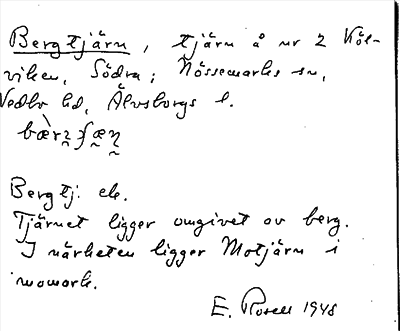 Bergtjärn, tjärn å nr 2 Köl-
viken, Södra; Nössemarks sn,
Vedbo hd, Älvsborgs l.
Bergtj. ek.
Tjärnet ligger omgivet av berg.
I närheten ligger Motjärn i
E. Rosell 1948